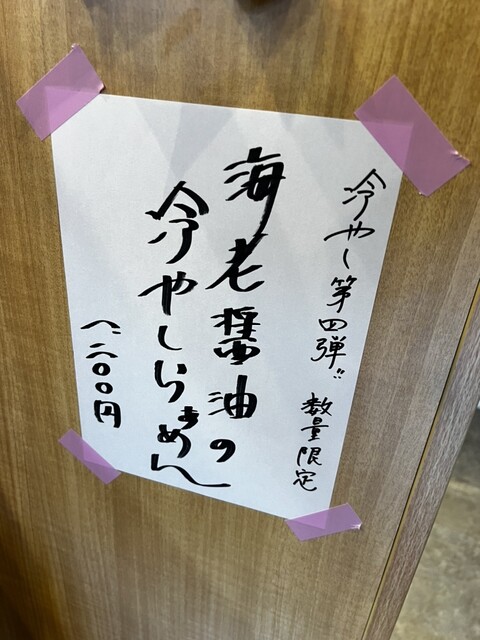 冷やし第四弾!! 数量限定
海老醤油の
冷やしらぁめん
一、二〇〇円